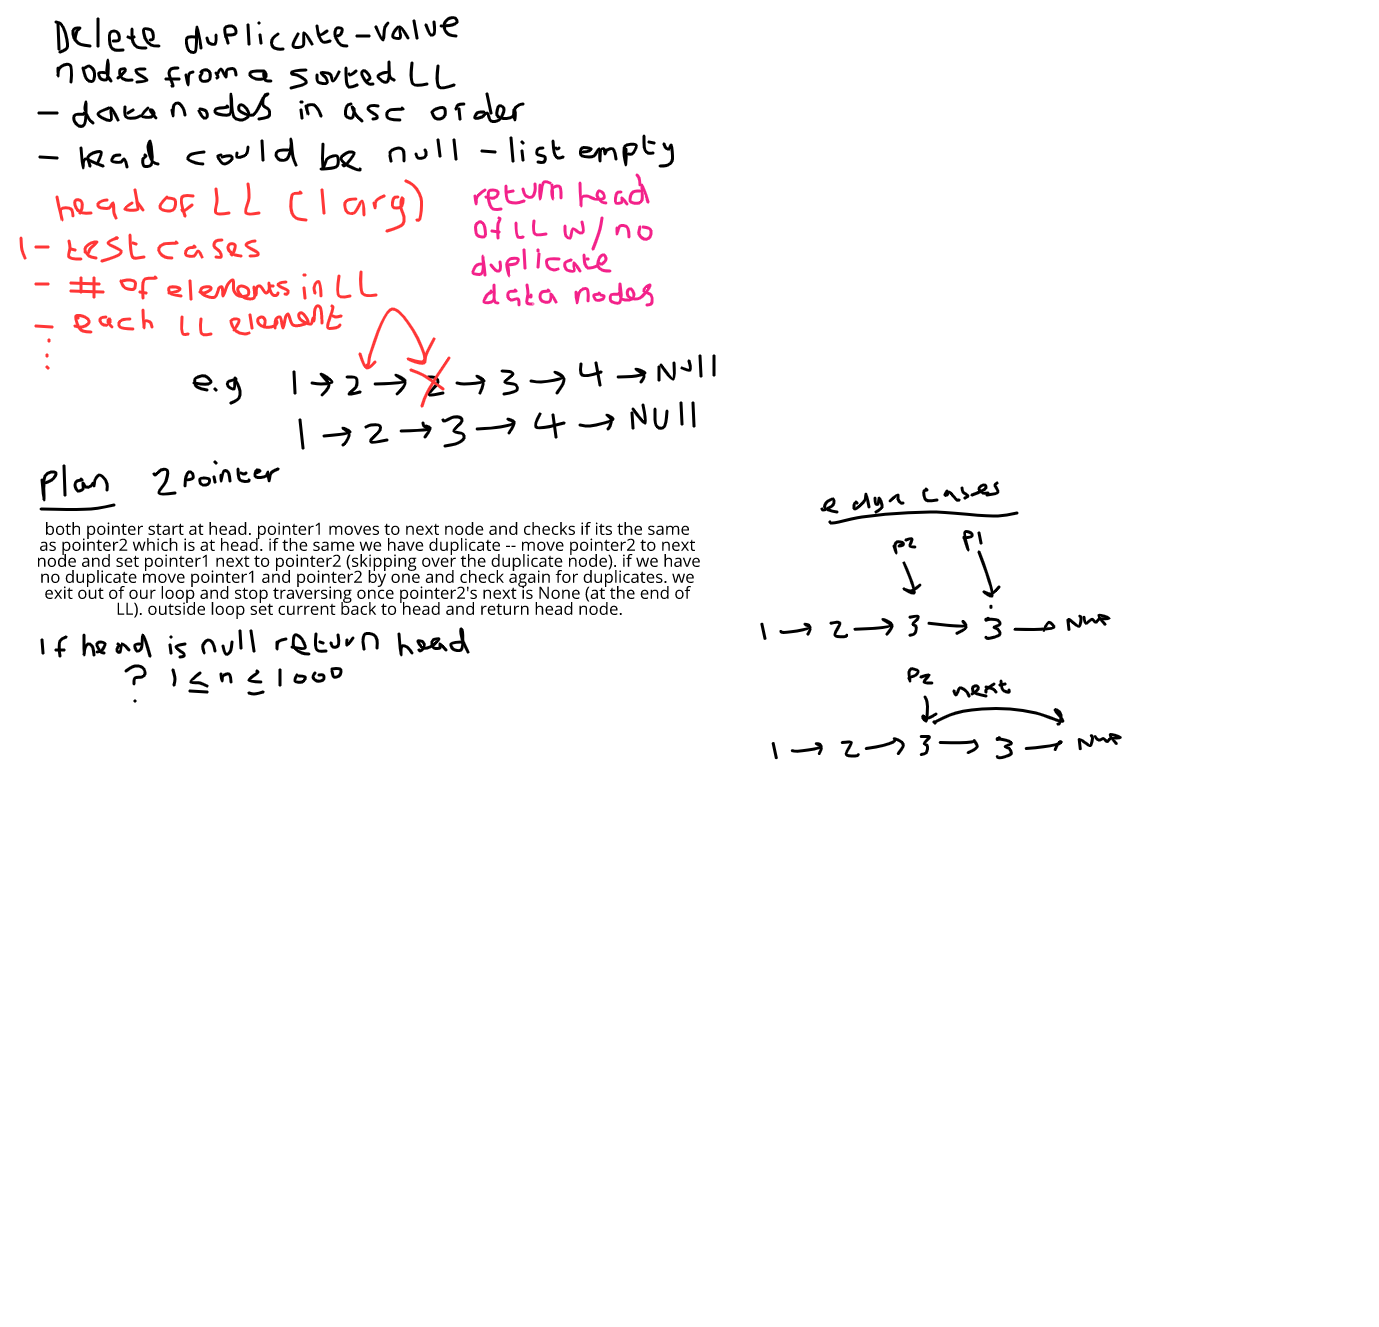 Delete duplicate-value
nodes from a sorted LL
- data nodes in asc order
- head could be null - list empty
head of LL (1 arg)
1 - test cases
- # of elements in LL
- each LL element
return head
of LL w/ no
duplicate
data nodes
e.g 1 → 2 → 2 → 3 → 4 → Null
1 → 2 → 3 → 4 → NUll
Plan 2 pointer
both pointer start at head. pointer1 moves to next node and checks if its the same
as pointer2 which is at head. if the same we have duplicate -- move pointer2 to next
node and set pointer1 next to pointer2 (skipping over the duplicate node). if we have
no duplicate move pointer1 and pointer2 by one and check again for duplicates. we
exit out of our loop and stop traversing once pointer2's next is None (at the end of
LL). outside loop set current back to head and return head node.
If head is null return head
? 1 ≤ n ≤ 1000
edge cases
P2 P1
1 → 2 → 3 → 3 →
P2 next
1 → 2 → 3 → 3 →